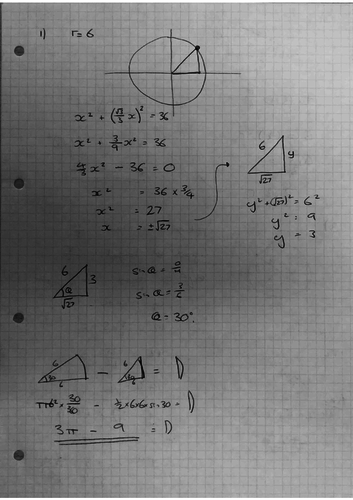 1) r=6
x² + (√3/3 x)² = 36
x² + 3/9 x² = 36
4/3 x² - 36 = 0
x² = 36 × 3/4
x² = 27
x = ±√27
6 y
√27
y² + (√27)² = 6²
y² = 9
y = 3
6 3
Q
√27
sin Q = o/H
sin Q = 3/6
Q = 30°.
6 30 6 - 6 30 6 = D
π6² × 30/30 - 1/2 × 6 × 6 × sin 30 = D
3π - 9 = D